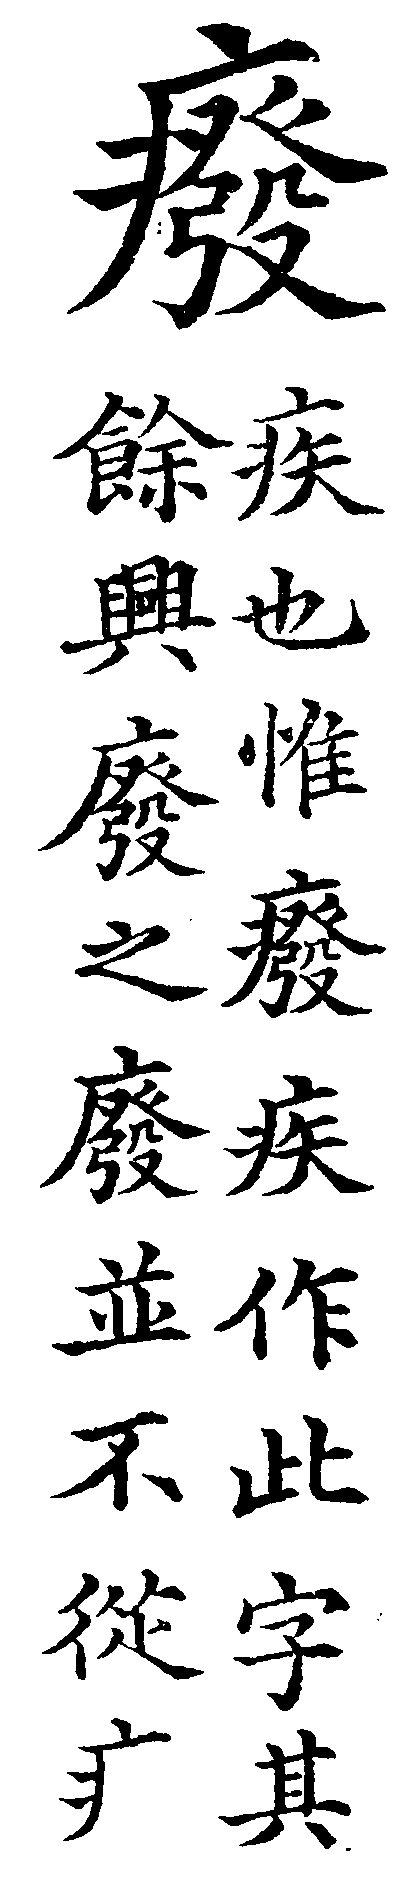 癈
疾也惟癈疾作此字其
餘興廢之廢並不從疒